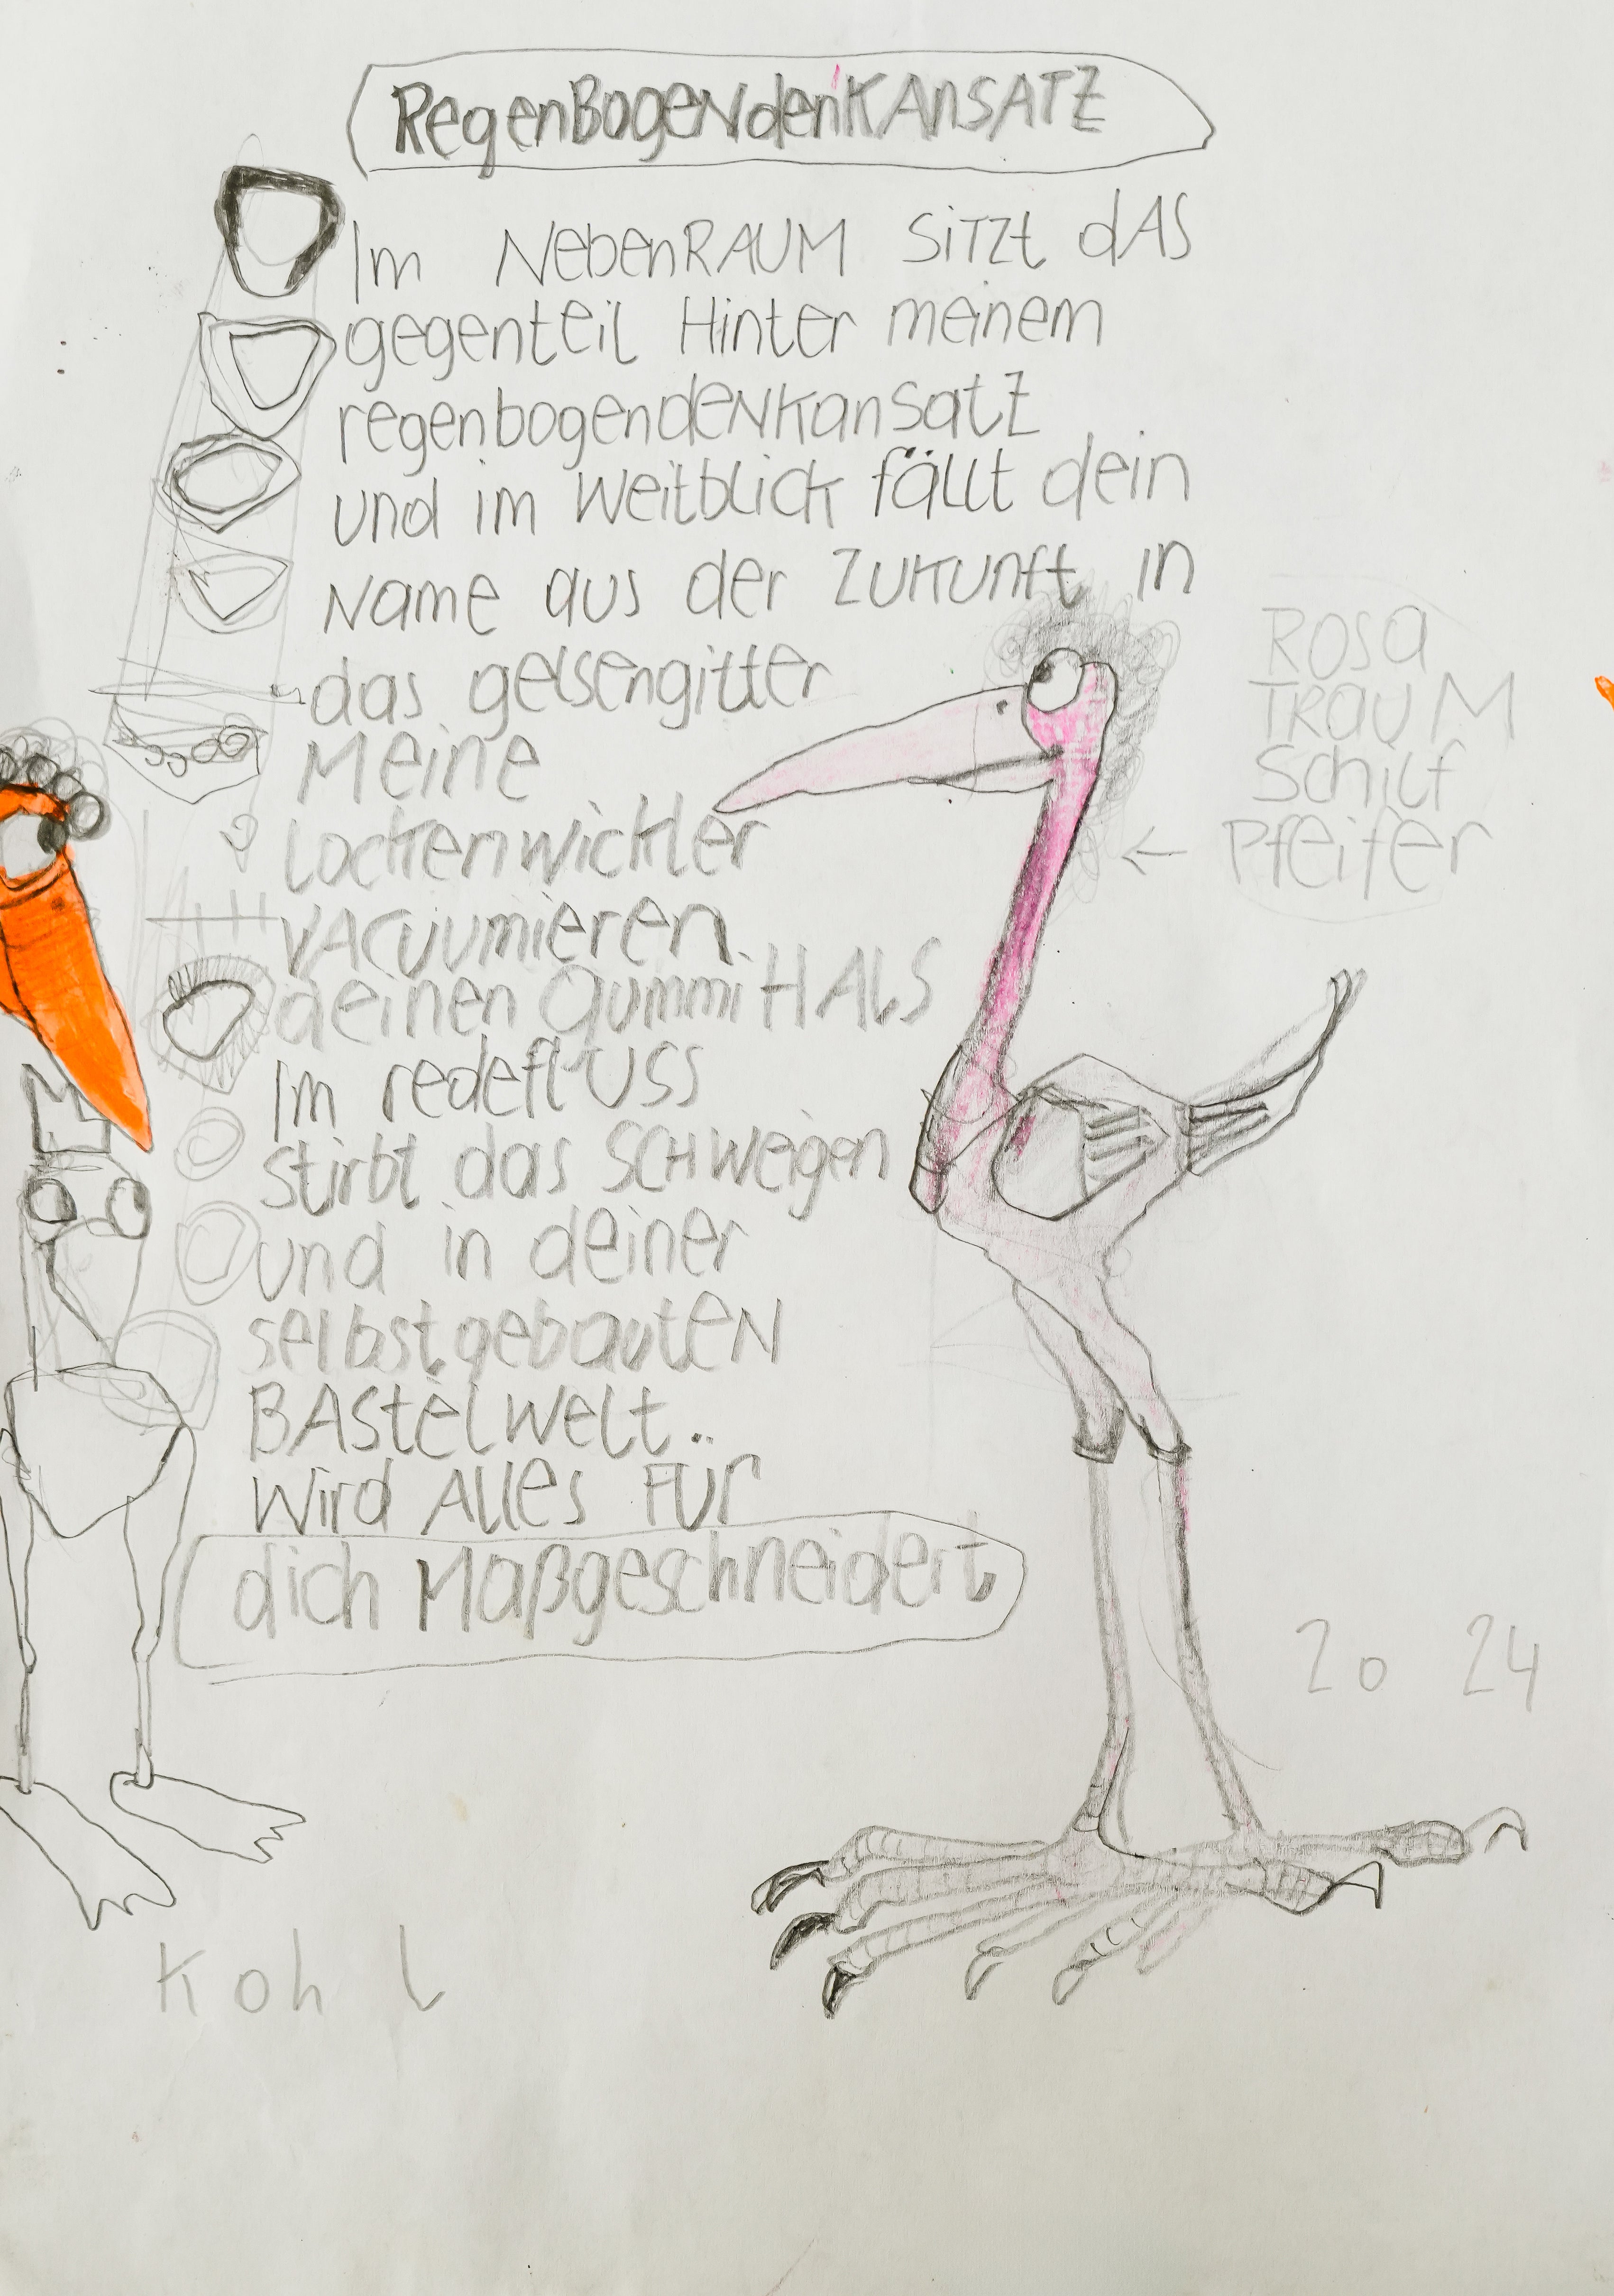 RegenBogeNdenKANSATZ
Im NebenRAUM SiTZt dAS
gegenteil Hinter meinem
regenbogendeNKanSatZ
und im Weitblick fällt dein
Name aus der ZUKUnft in
das gelsengitter
Meine
Lockenwickler
VACUumieren
deinen GummiHALS
Im redeflUSS
stirbt das SCHWeigen
und in deiner
selbstgebauteN
BAStelWelt
Wird Alles FÜr
dich Maßgeschneidert
ROSa
TRaUM
Schilf
Pfeifer
2024
Kohl